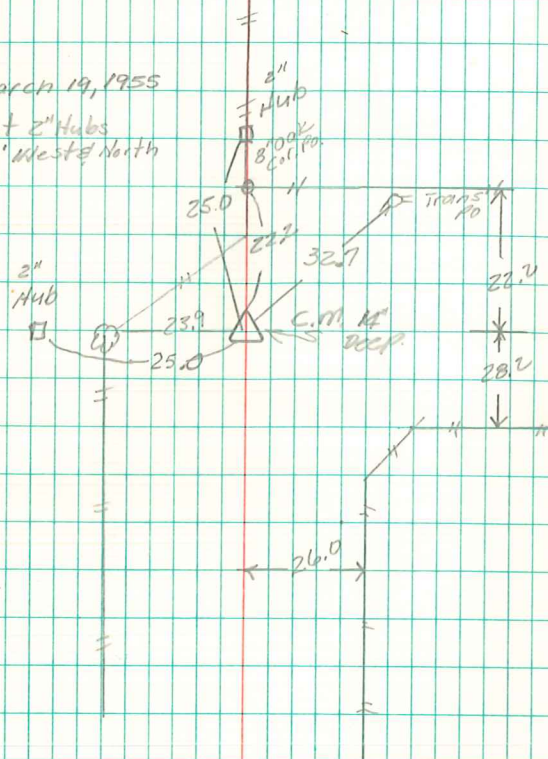 arch 19, 1955
t 2" Hubs
' West & North
2"
Hub
8" oak
Cor. Po.
25.0
Trans
Po
22.2
32.7
22.2
2"
Hub
23.9
C.M. 14"
Deep.
25.0
28.2
26.0